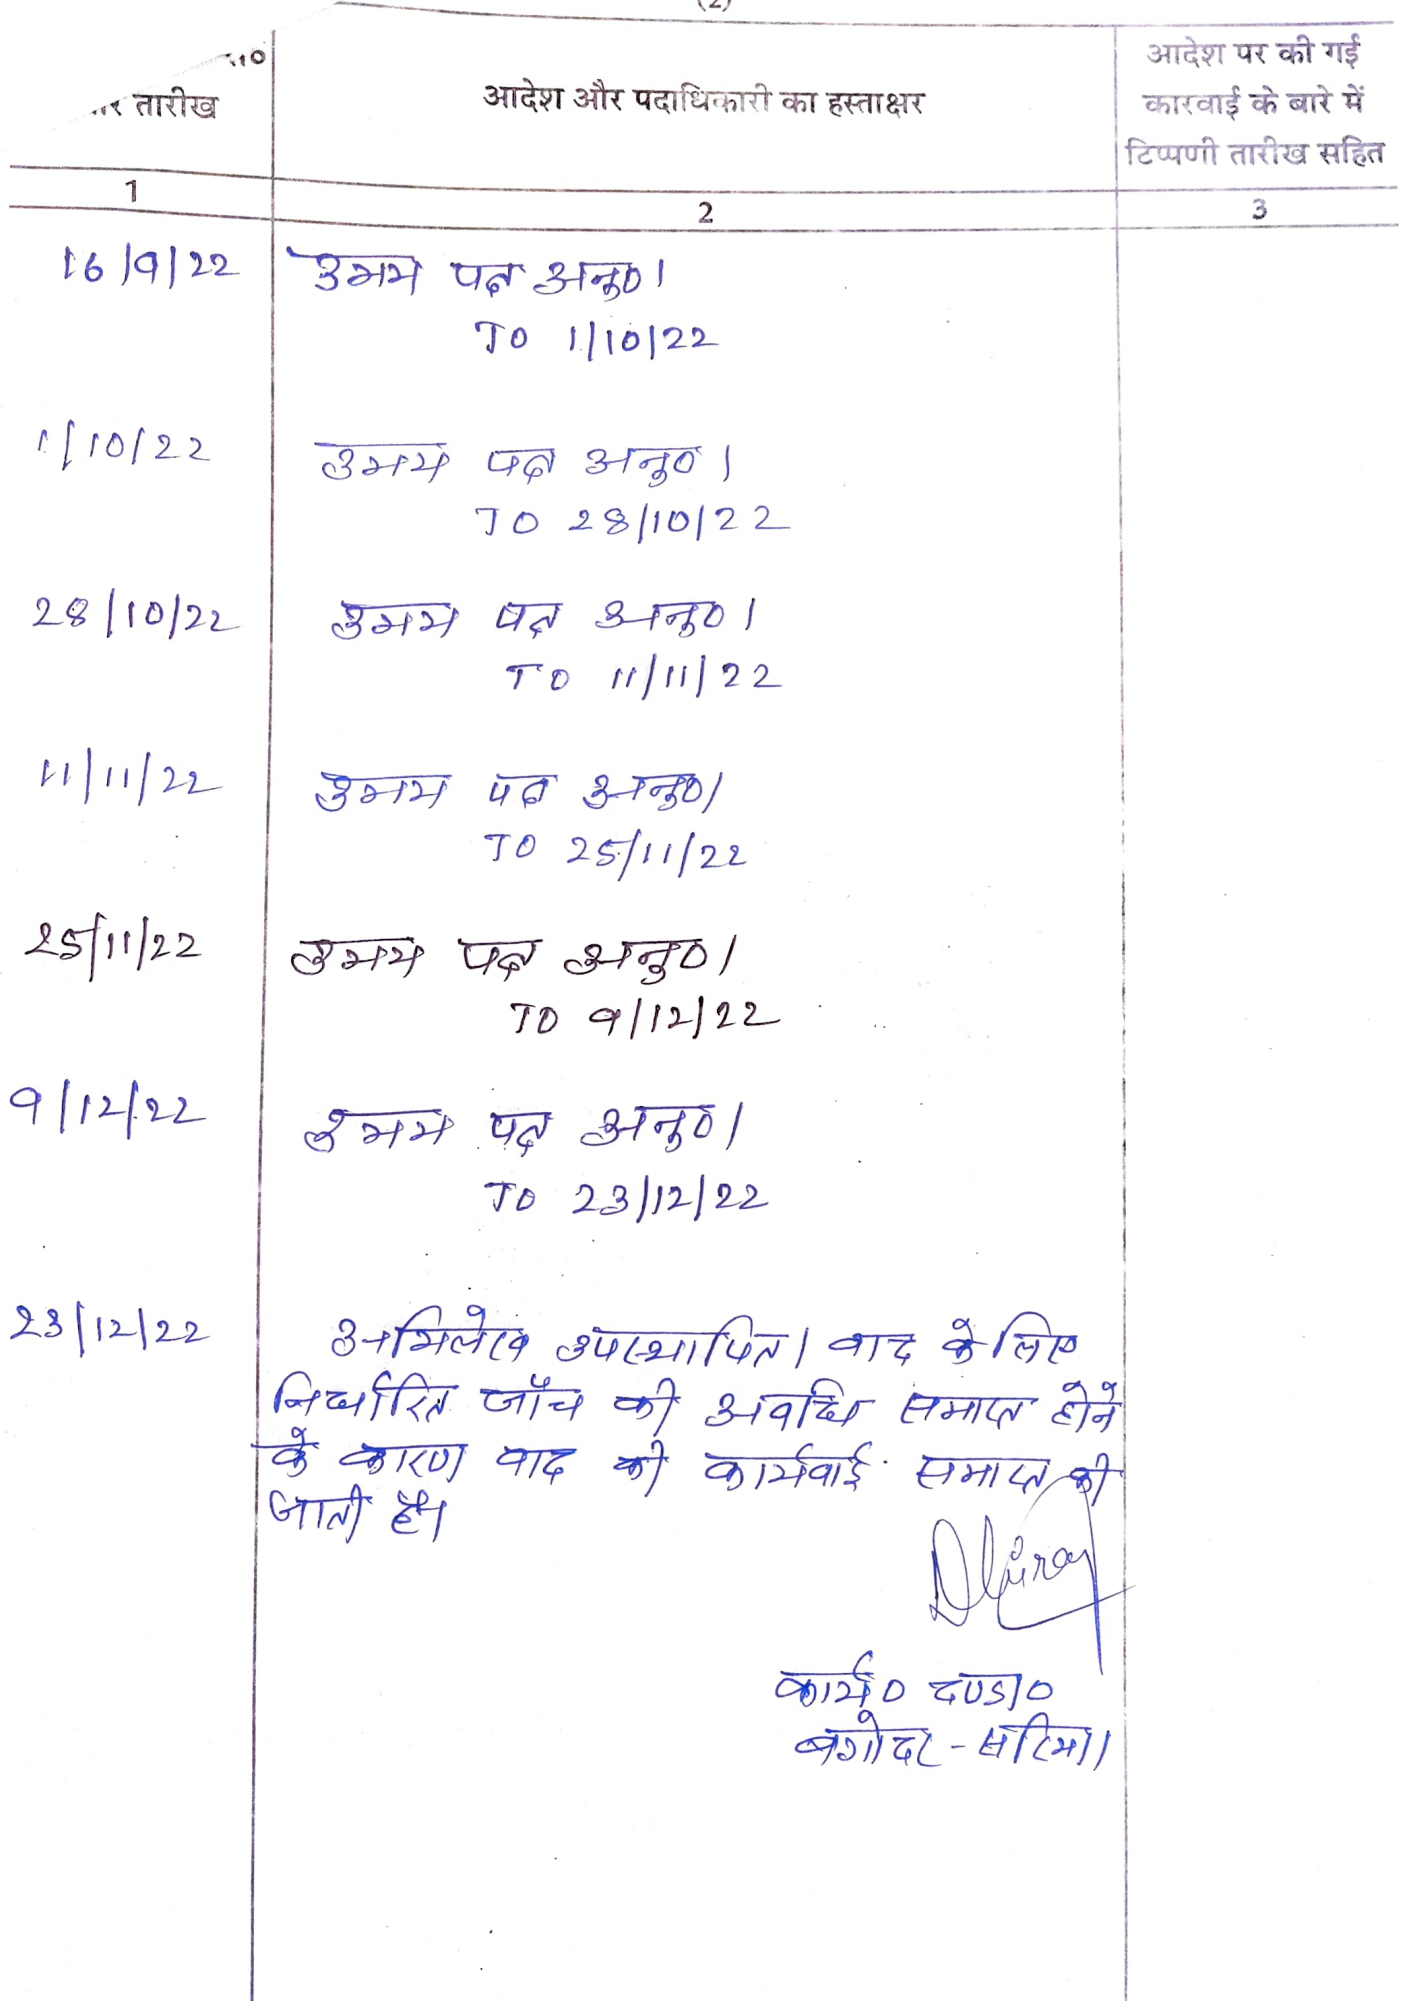 (2)
आदेश पर की गई
तारीख
आदेश और पदाधिकारी का हस्ताक्षर
कारवाई के बारे में
टिप्पणी तारीख सहित
1
2
3
16/9/22
उभय पक्ष अनु०।
TO 1/10/22
1/10/22
उभय पक्ष अनु०।
TO 28/10/22
28/10/22
उभय पक्ष अनु०।
TO 11/11/22
11/11/22
उभय पक्ष अनु०।
TO 25/11/22
25/11/22
उभय पक्ष अनु०।
TO 9/12/22
9/12/22
उभय पक्ष अनु०।
TO 23/12/22
23/12/22
अभिलेख उपस्थापित। वाद के लिए
निर्धारित जाँच की अवधि समाप्त होने
के कारण वाद की कार्यवाई समाप्त की
जाती है।
Dhiraj
कार्य० दण्डा०
बगोदर - सरिया।